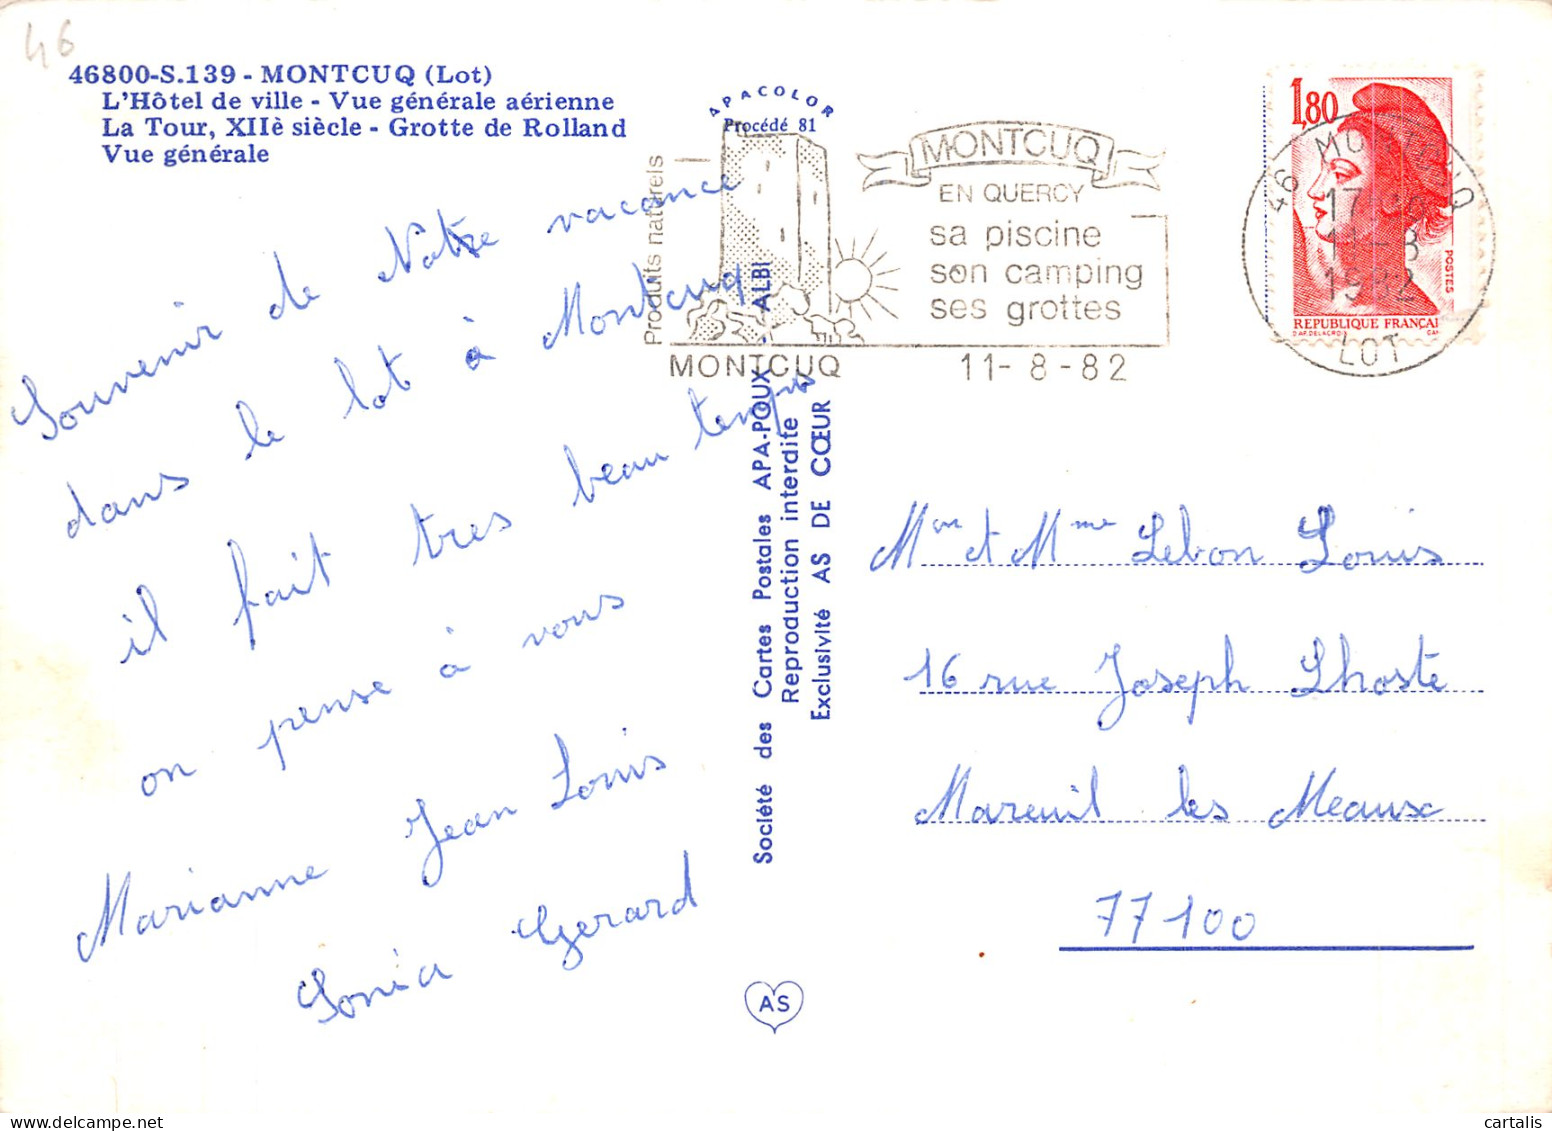 46
46800-S.139 - MONTCUQ (Lot)
L'Hôtel de ville - Vue générale aérienne
La Tour, XIIè siècle - Grotte de Rolland
Vue générale
APACOLOR
Procédé 81
Produits naturels
MONTCUQ
MONTCUQ
EN QUERCY
sa piscine
son camping
ses grottes
11-8-82
1,80
POSTES
REPUBLIQUE FRANÇAI
46 MONTCUQ
17
11-8
1982
LOT
Souvenir de Notre vacance
dans le lot à Montcuq
il fait tres beau temps
on pense à vous
Marianne Jean Louis
Sonia Gerard
Société des Cartes Postales APA-POUX - ALBI
Reproduction interdite
Exclusivité AS DE CŒUR
AS
Mr et Mme Lebon Louis
16 rue Joseph Lhoste
Mareuil les Meaux
77100
cartalis